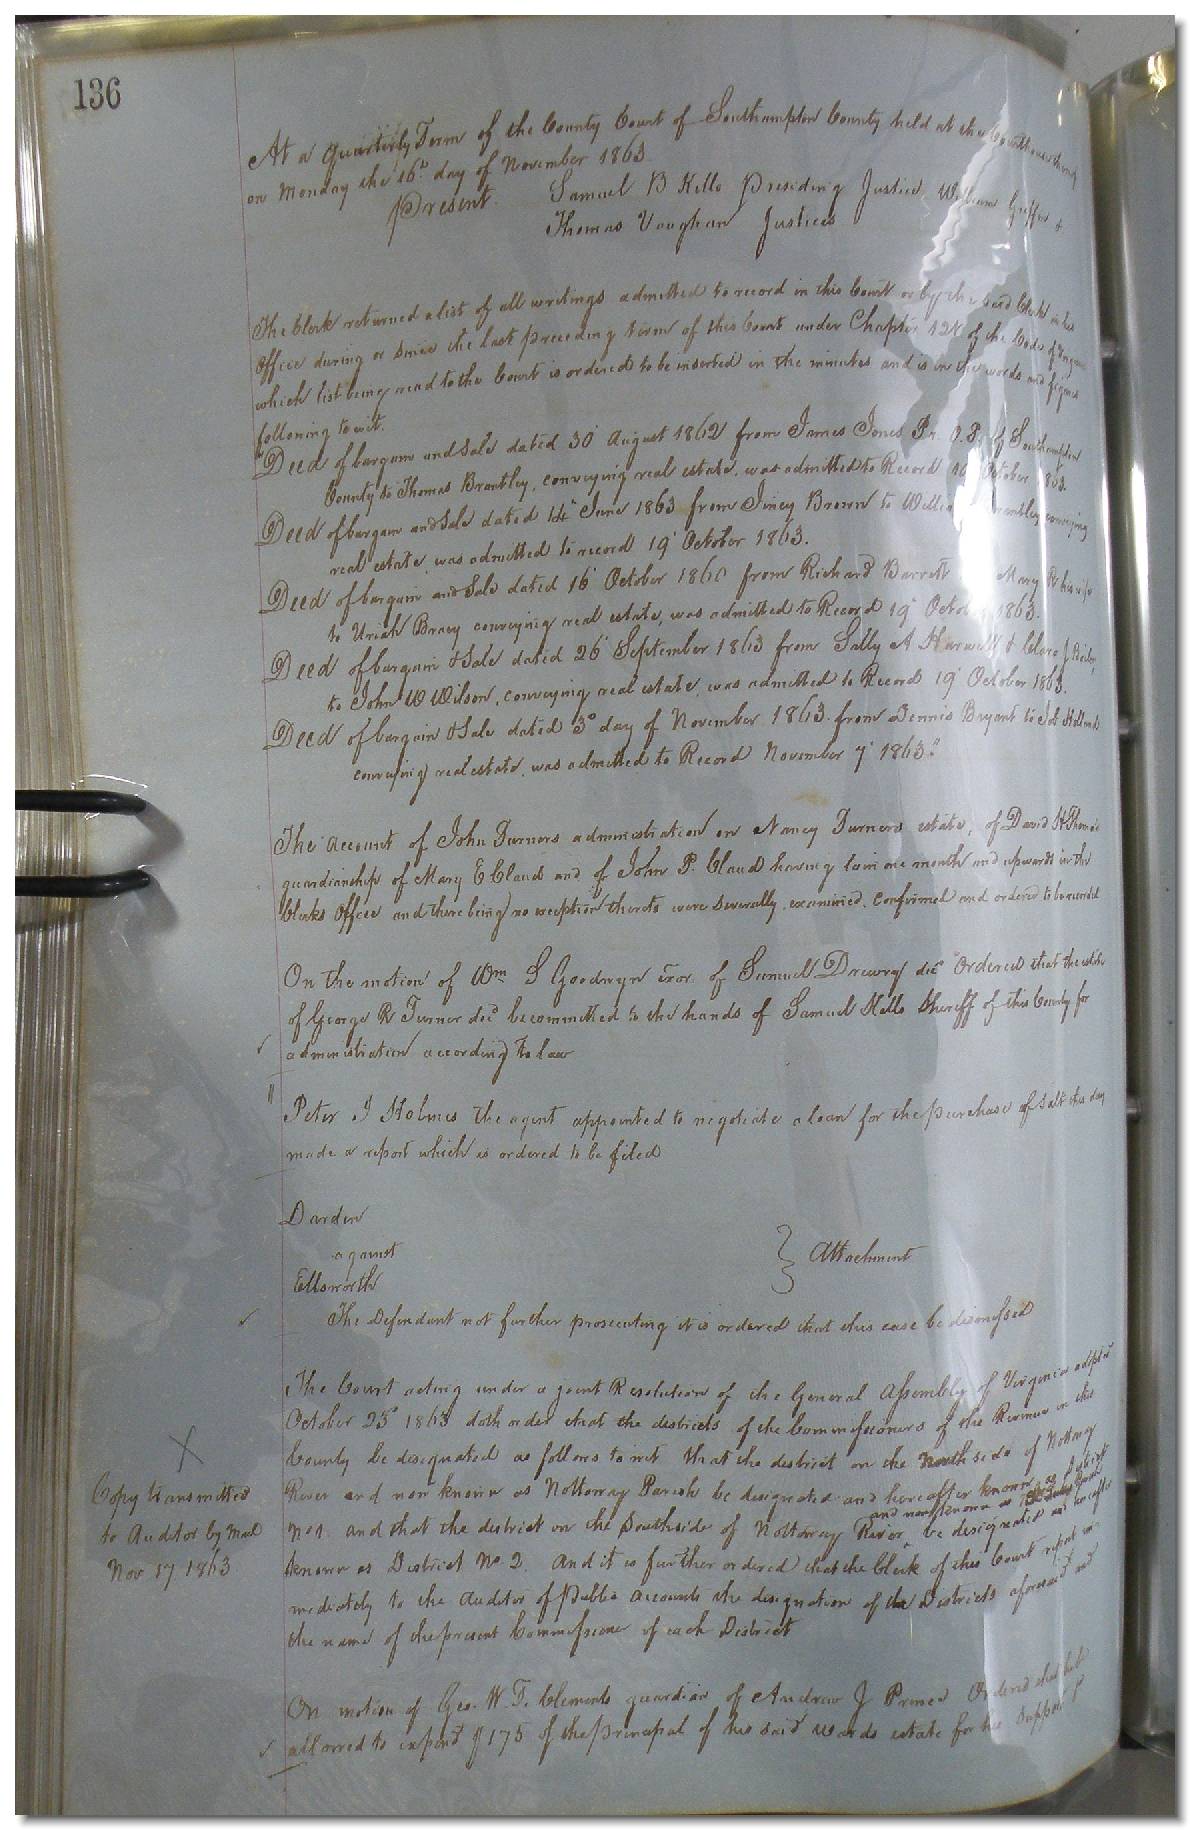 136
At a Quarterly Term of the County Court of Southampton County held at the Courthouse thereof
on Monday the 16th day of November 1863
Present. Samuel B Kello Presiding Justice, William Griffin &
Thomas Vaughan Justices
The Clerk returned a list of all writings admitted to record in this Court or by the said Clerk in his
Office during or since the last preceding term of this Court under Chapter 121 of the Code of Virginia
which list being read to the Court is ordered to be inserted in the minutes and is in the words and figures
following to wit.
"Deed of bargain and Sale dated 30 August 1862 from James Jones of Southampton
County to Thomas Brantley, conveying real estate, was admitted to Record October 1863.
Deed of bargain and Sale dated 14th June 1863 from Jincy Brown to conveying
real estate was admitted to record 19 October 1863.
Deed of bargain and Sale dated 16 October from Richard Barrett Mary his wife
to Uriah Bracy conveying real estate, was admitted to Record 19 October 1863.
Deed of bargain & Sale dated 26 September 1863 from Sally A &
to John W Wilson, conveying real estate, was admitted to Record 19 October 1863.
Deed of bargain & Sale dated 3d day of November 1863 from Dennis Bryant to Job Holland
conveying real estate, was admitted to Record November 7 1863."
The account of John Turners administration on Nancy Turners estate, of David H Thomas
guardianship of Mary E Claud and of John P. Claud having lain one month and upwards in the
Clerks Office and there being no exception thereto were severally examined, confirmed and ordered to be recorded
On the motion of Wm S Goodwyn Exor. of Samuel Drewry decd Ordered that the estate
of George R Turner decd be committed to the hands of Samuel Kello Sheriff of this County for
administration according to law
Peter J Holmes the agent appointed to negotiate a loan for the purchase of Salt this day
made a report which is ordered to be filed
Darden
against } Attachment
Ellsworth
The Defendant not further prosecuting it is ordered that this case be dismissed
The Court acting under a joint Resolution of the General Assembly of Virginia adopted
October 23d 1863 doth order that the districts of the Commissioners of the Revenue in this
County be designated as follows to wit that the district on the North side of Nottoway
River and now known as Nottoway Parish be designated and hereafter known as District
and now known as
No 1. and that the district on the Southside of Nottoway River, be designated and hereafter
known as District No. 2. And it is further ordered that the Clerk of this Court report im-
mediately to the Auditor of public accounts the designation of the Districts aforesaid and
the name of the present Commissioner of each District
Copy transmitted
to Auditor by mail
Nov 17 1863
On motion of Geo. W. T. Clements guardian of Andrew J Prince Ordered that he be
allowed to expend $175 of the principal of his said wards estate for his support